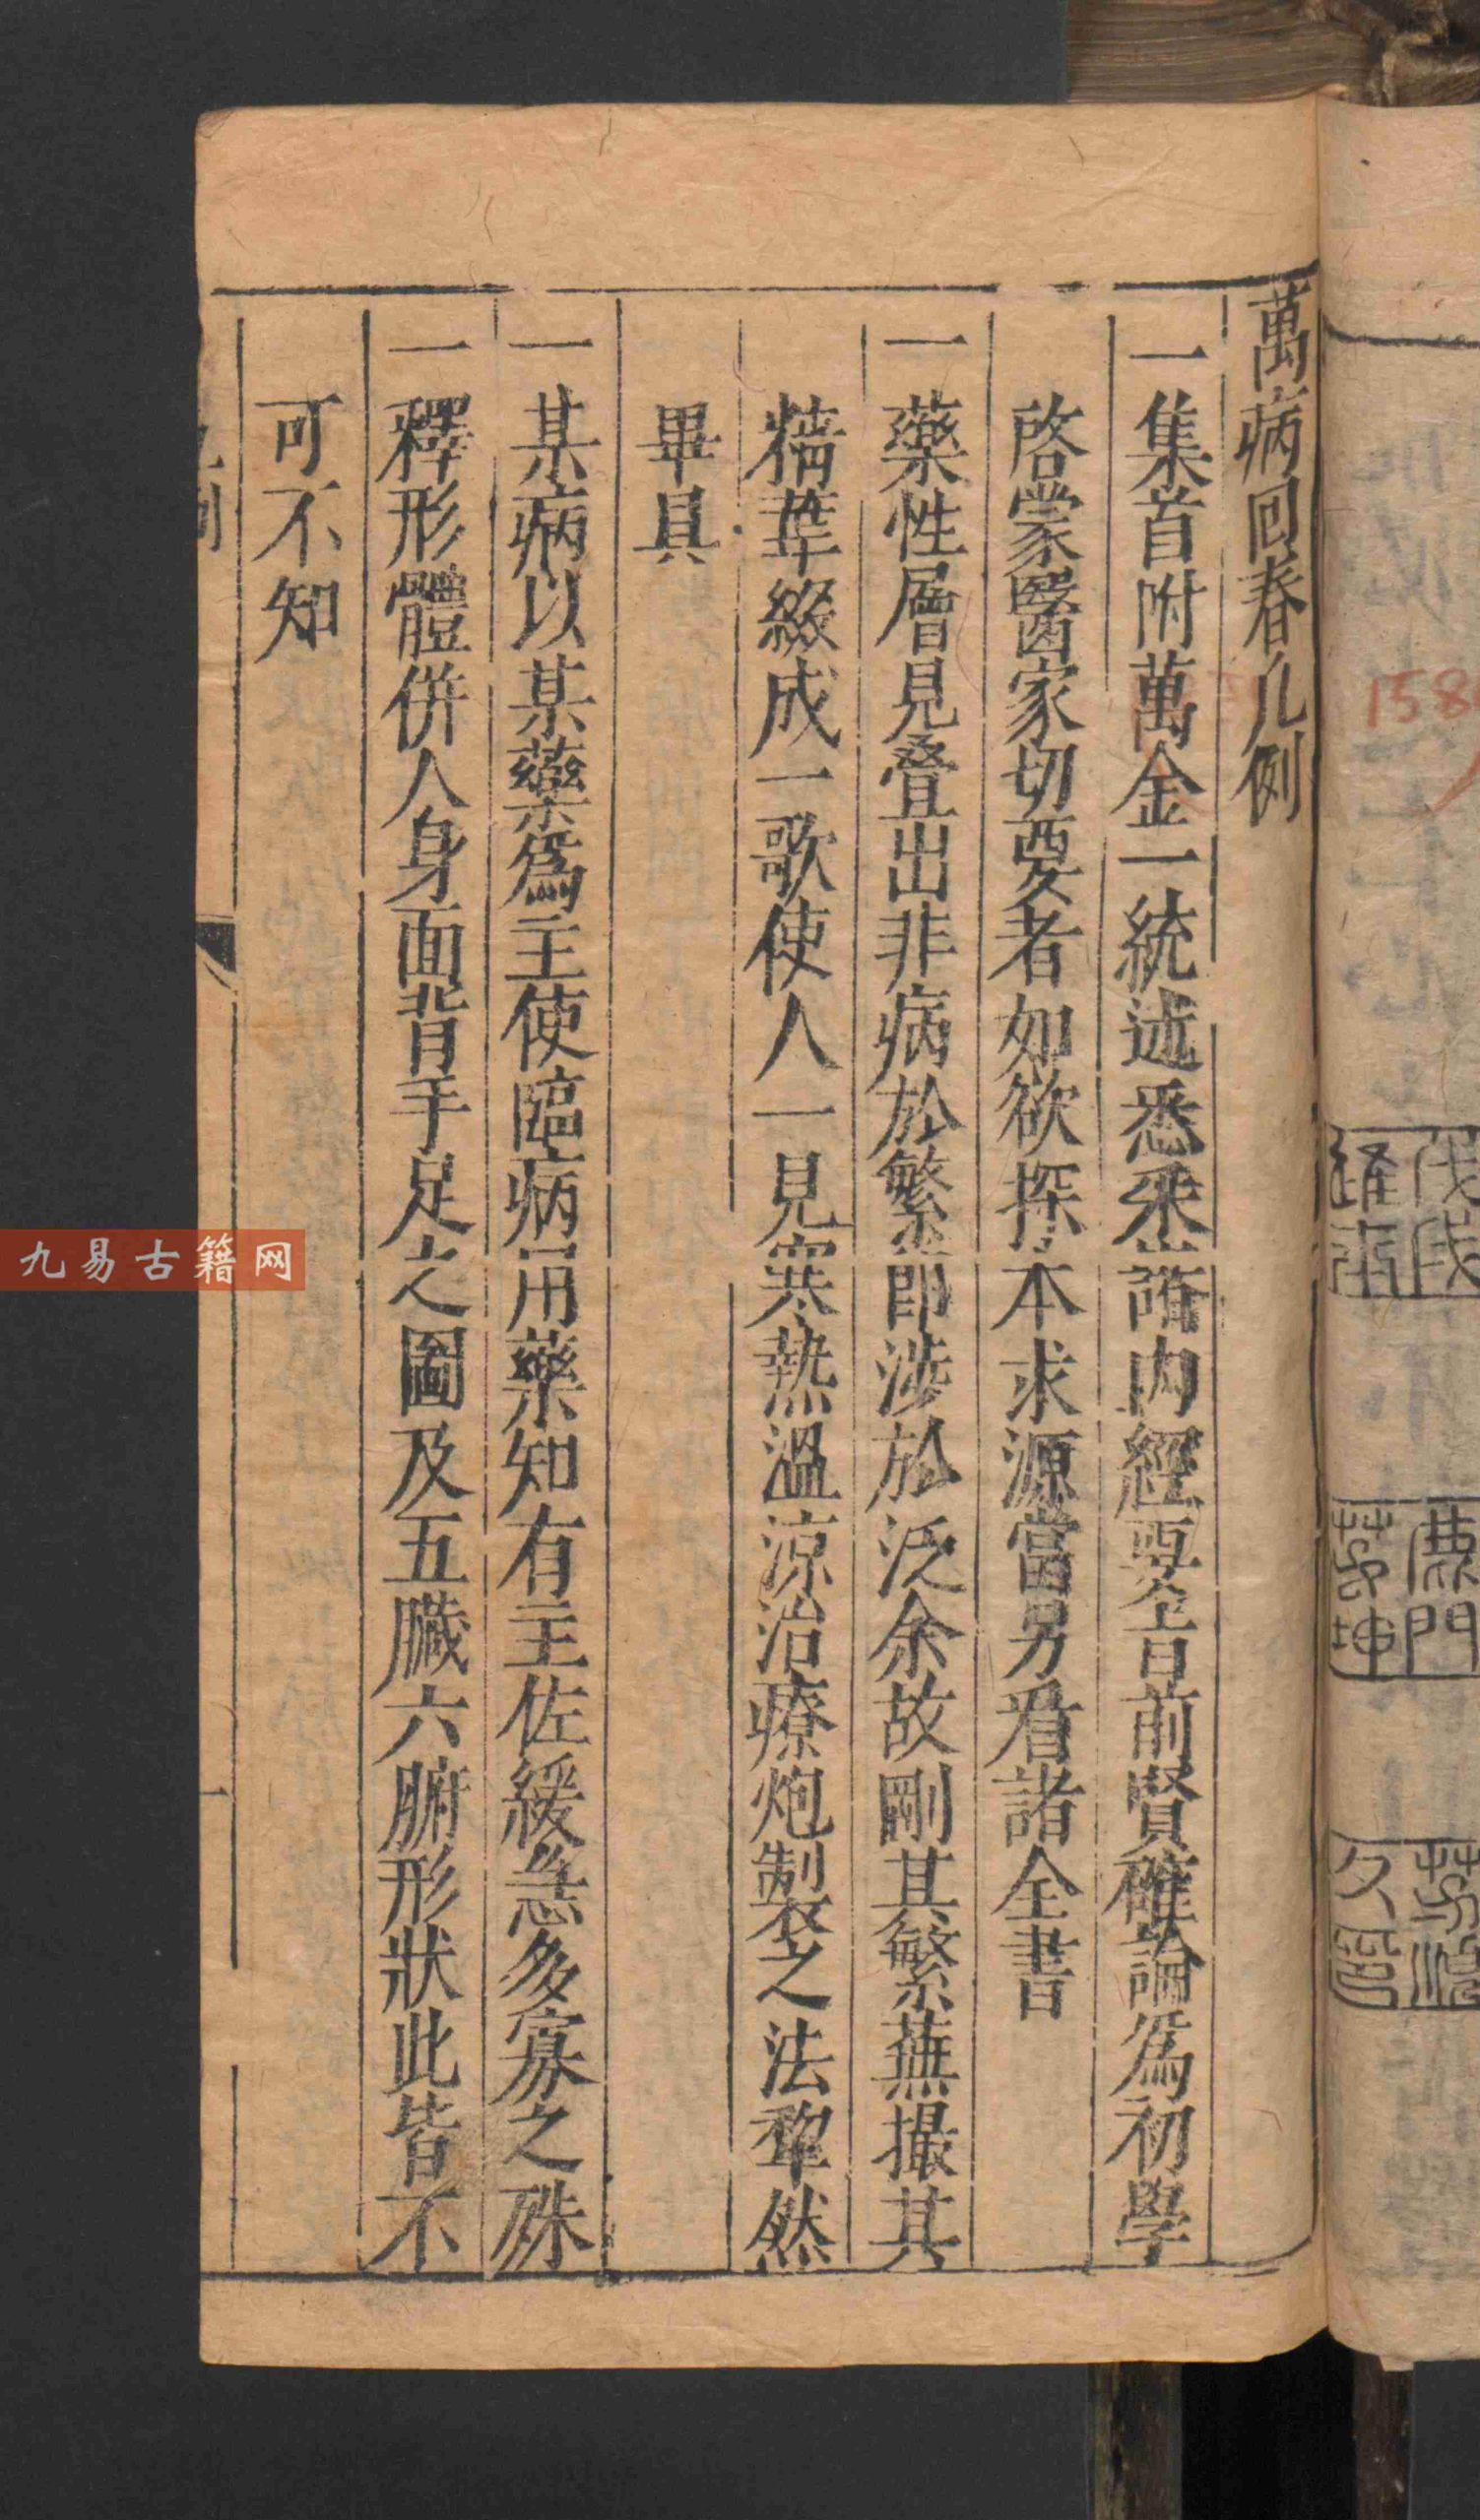 萬病回春凡例
一集首附萬金一統述悉采諸內經要旨前賢確論爲初學
啓蒙醫家切要者如欲探本求源當另看諸全書
一藥性層見疊出非病於繁即涉於泛余故刪其繁蕪撮其
精華綴成一歌使人一見寒熱溫涼治療炮製之法犂然
畢具
一某病以某藥爲主使臨病用藥知有主佐緩急多寡之殊
一釋形體併人身面背手足之圖及五臟六腑形狀此皆不
可不知
一
158
九易古籍网